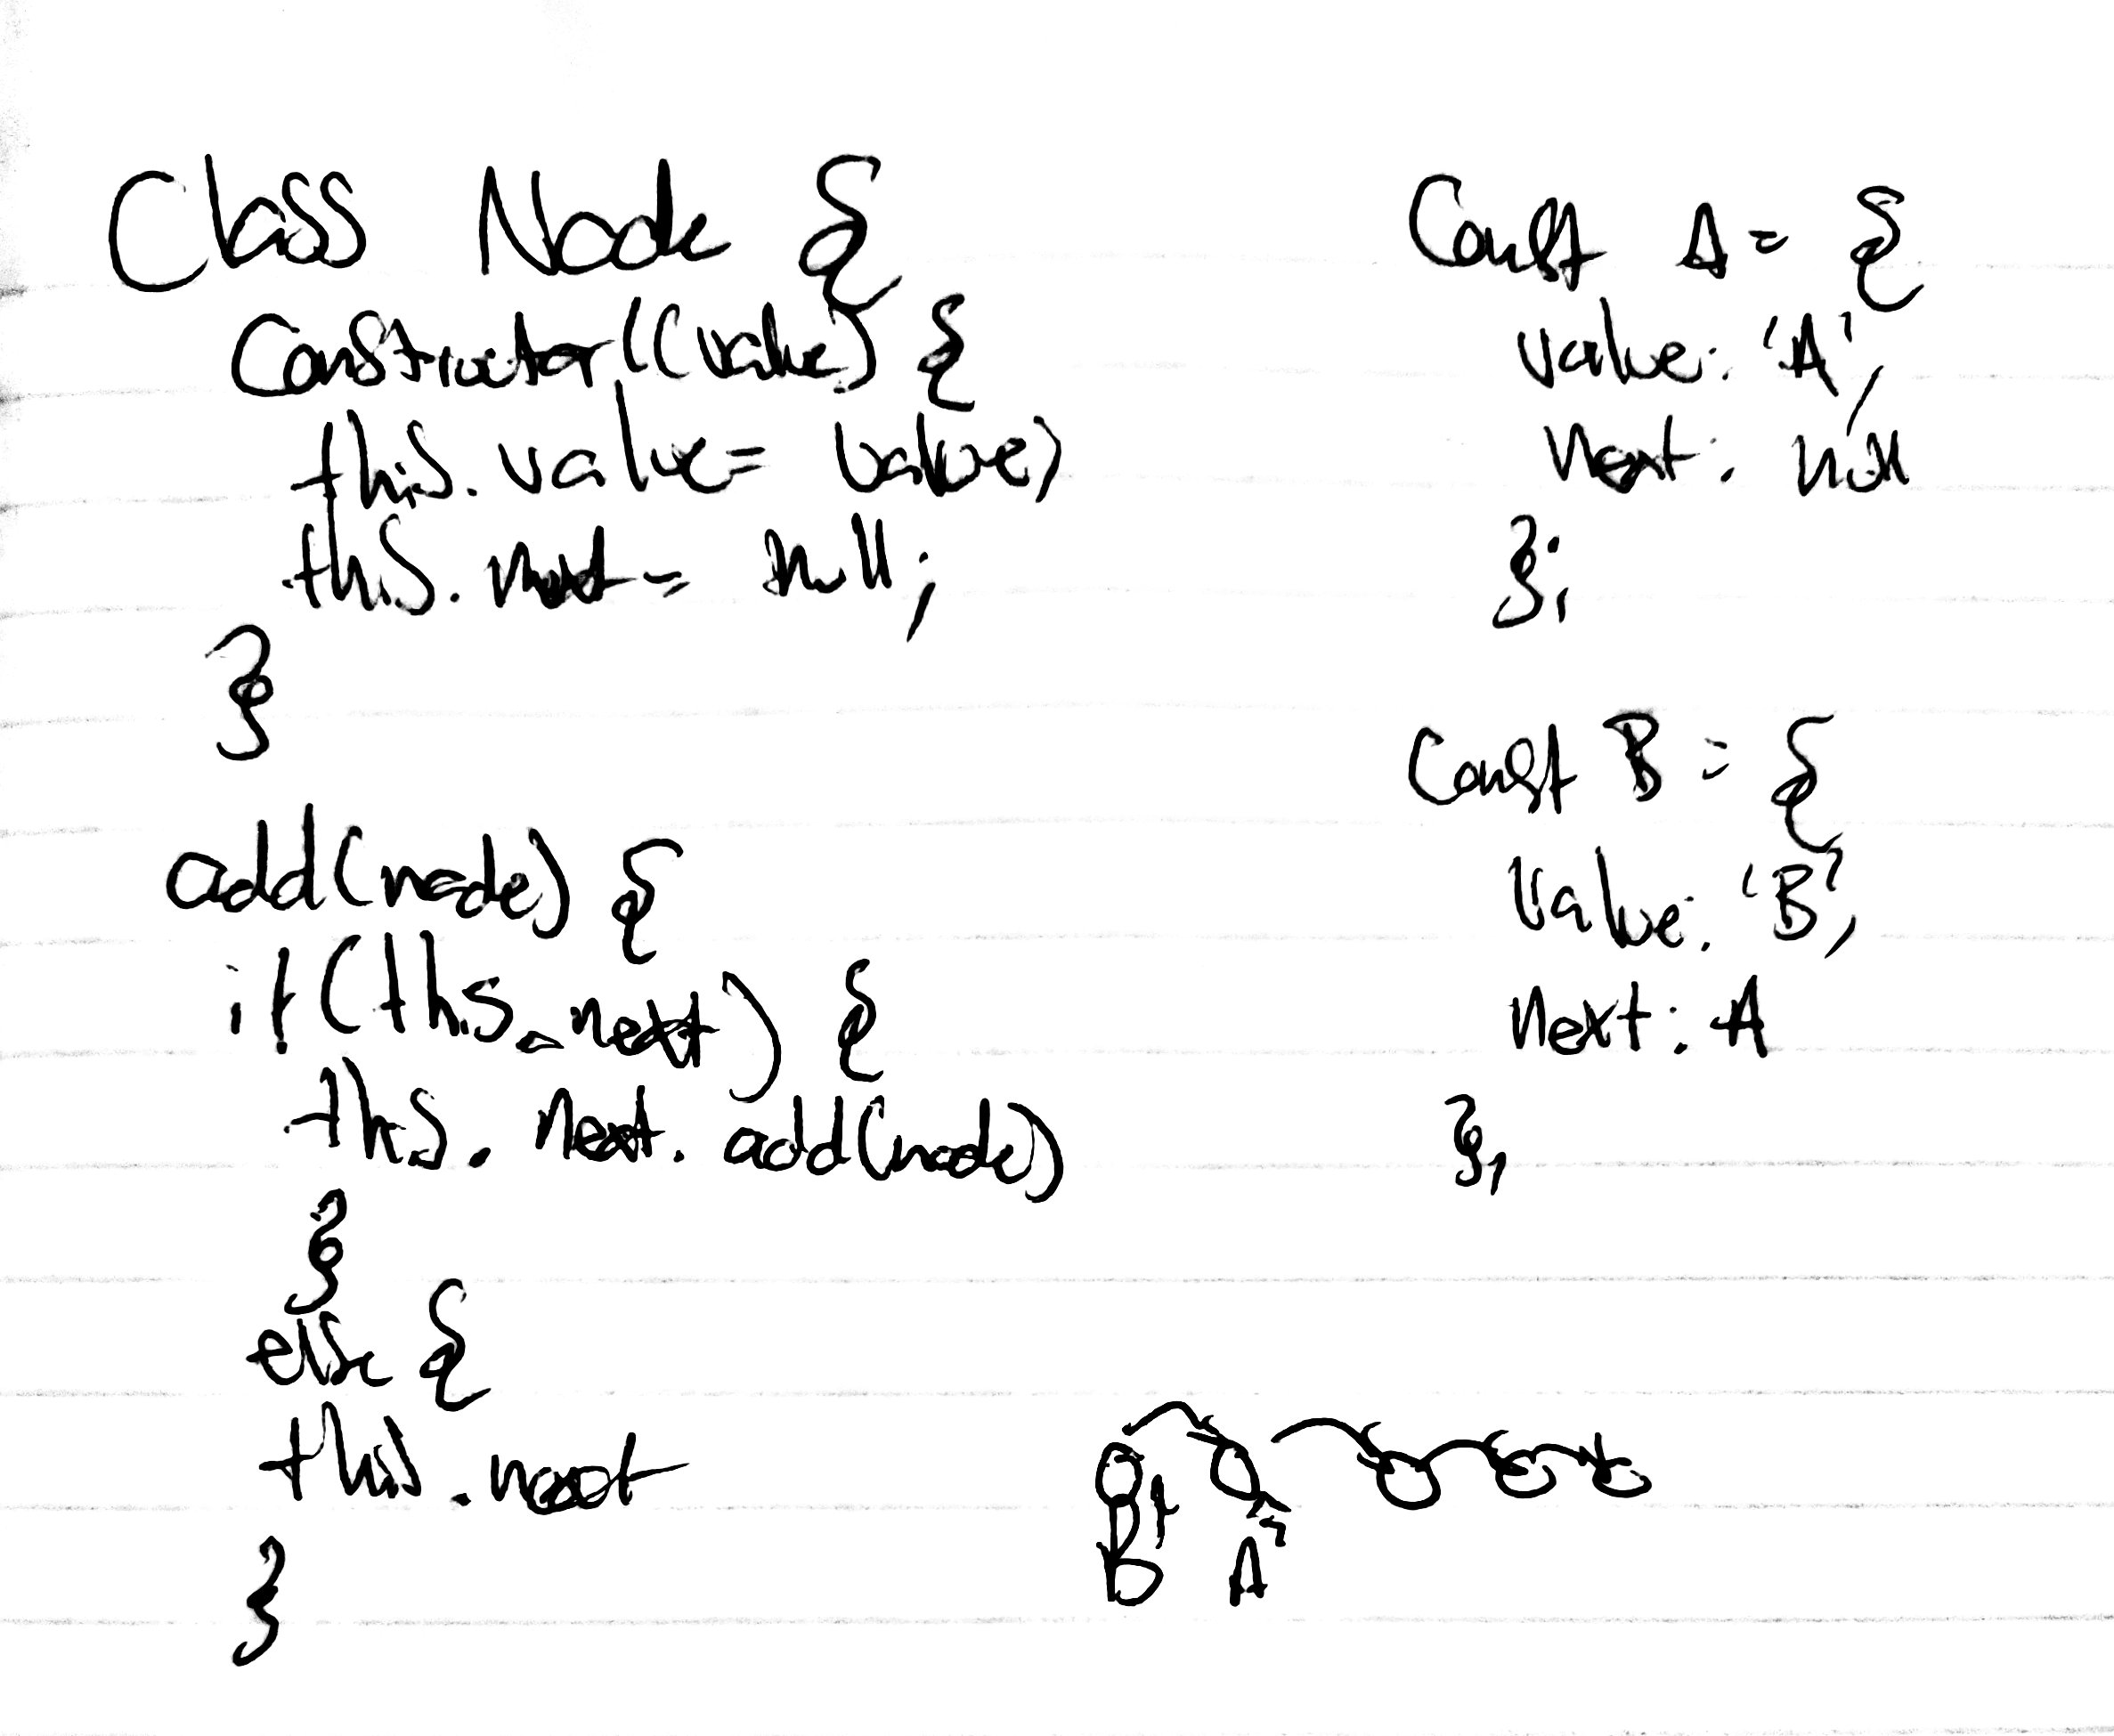 Class Node {
Constructor((value) {
this.value = value;
this.next = null;
}
add(node) {
if(this.next) {
this.next.add(node)
}
else {
this.next
}
Const A = {
value: 'A',
next: null
};
Const B = {
value: 'B',
next: A
};
B A